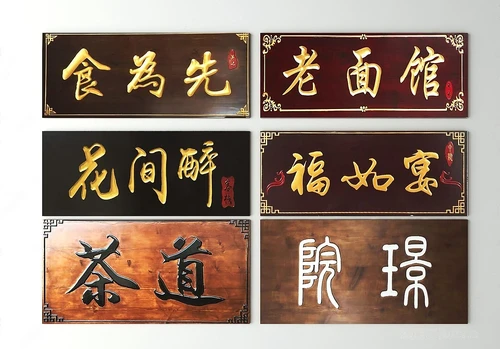 食為先
老面馆
花间醉
福如宴
茶道
院璟